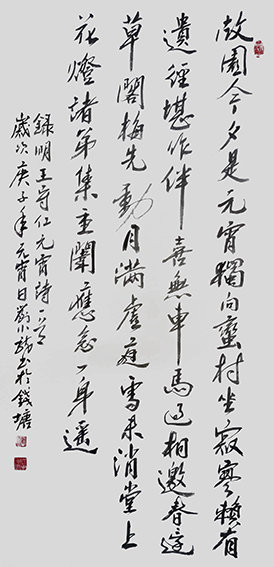 故園今夕是元宵獨向蠻村坐寂寥賴有
遺經堪作伴喜無車馬過相邀春還
草閣梅先動月滿虛庭雪未消堂上
花燈諸弟集重闈應念一身遥
録明王守仁元宵詩一首
歲次庚子年元宵日劉小書於錢塘